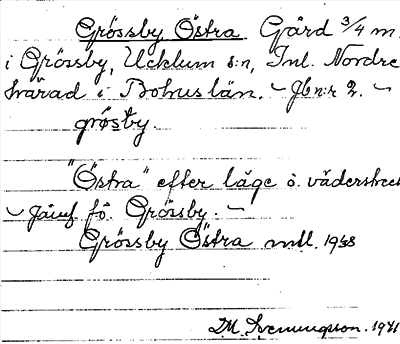 Grössby Östra. Gård 3/4 m.
i Grössby, Ucklum s:n, Inl. Nordre
härad i Bohus län. - Jb n:r 2. -
grösby.
"Östra" efter läge o. väderstreck
- Jämf. fö. Grössby. -
Grössby Östra mtl. 1938
DM. Svenungsson. 1941